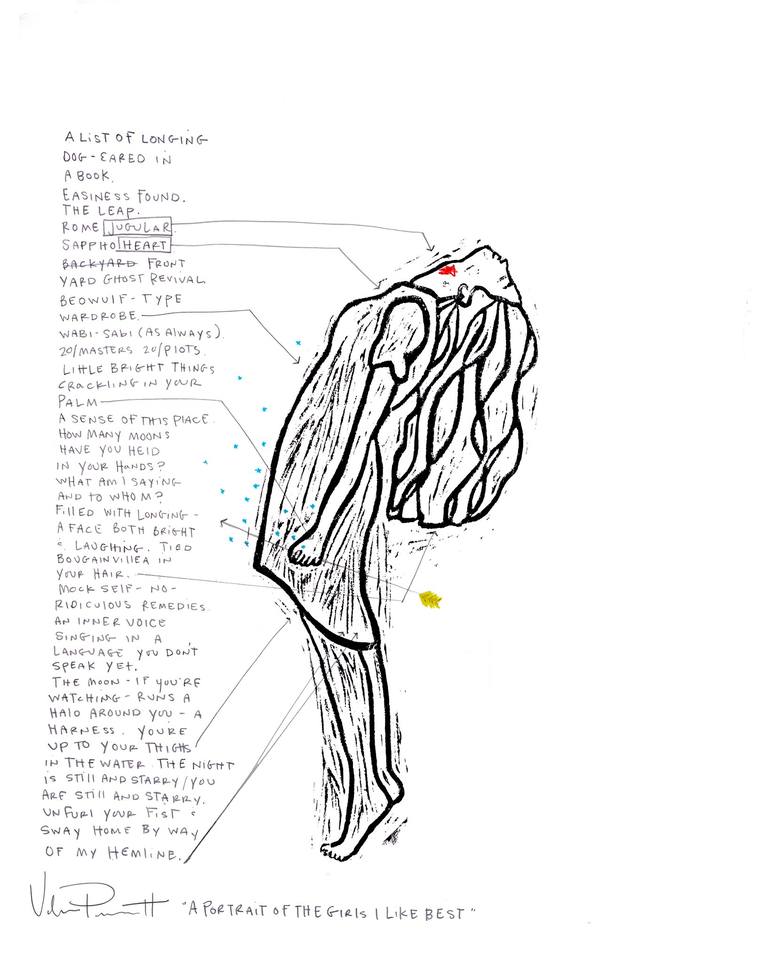 A LIST OF LONGING
DOG-EARED IN
A BOOK.
EASINESS FOUND.
THE LEAP.
ROME JUGULAR.
SAPPHO HEART
BACKYARD FRONT
YARD GHOST REVIVAL
BEOWULF-TYPE
WARDROBE.
WABI-SABI (AS ALWAYS).
20/MASTERS 20/PLOTS.
LITTLE BRIGHT THINGS
CRACKLING IN YOUR
PALM
A SENSE OF THIS PLACE.
HOW MANY MOONS
HAVE YOU HELD
IN YOUR HANDS?
WHAT AM I SAYING
AND TO WHOM?
FILLED WITH LONGING -
A FACE BOTH BRIGHT
& LAUGHING. TIED
BOUGAINVILLEA IN
YOUR HAIR.
MOCK SELF-NO-
RIDICULOUS REMEDIES.
AN INNER VOICE
SINGING IN A
LANGUAGE YOU DON'T
SPEAK YET.
THE MOON - IF YOU'RE
WATCHING - RUNS A
HALO AROUND YOU - A
HARNESS. YOU'RE
UP TO YOUR THIGHS
IN THE WATER. THE NIGHT
IS STILL AND STARRY/YOU
ARE STILL AND STARRY.
UNFURL YOUR FIST &
SWAY HOME BY WAY
OF MY HEMLINE.
"A PORTRAIT OF THE GIRLS I LIKE BEST"